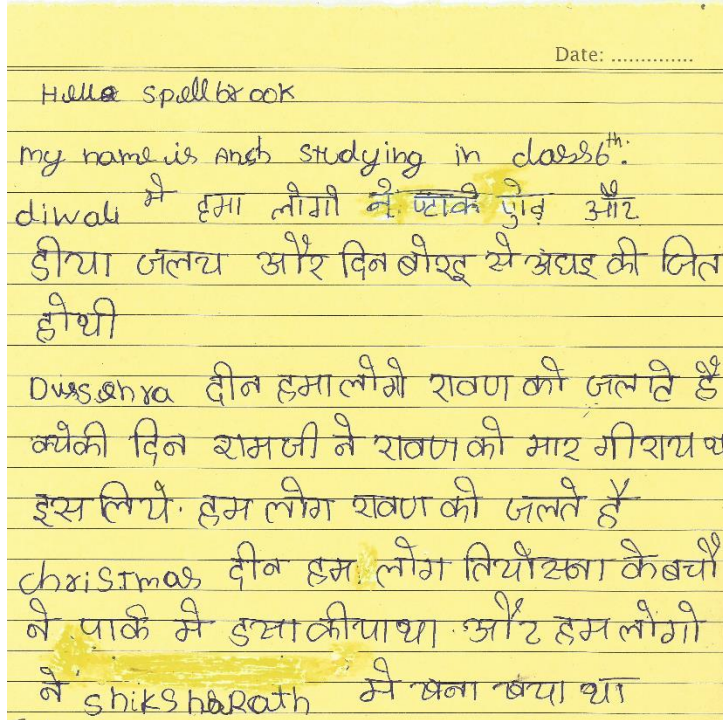 Date: ..............
Hello spellbrook
my name is Ansh studying in class 6th.
diwali मे हमा लोगो ने फटाके फोड़ और
डीया जलय और दिन बोरइ से अंघइ की जित
होथी
Dussehra दीन हमा लोगो रावण को जलाते है
क्येकी दिन रामजी ने रावण को मार गीराय थ
इस लिये. हम लोग रावण को जलते है
christmas दीन हम लोग तियोत्सना के बचौ
ने पार्क मे डसा कीया था. और हम लोगो
ने shiksharath मे खना खया था